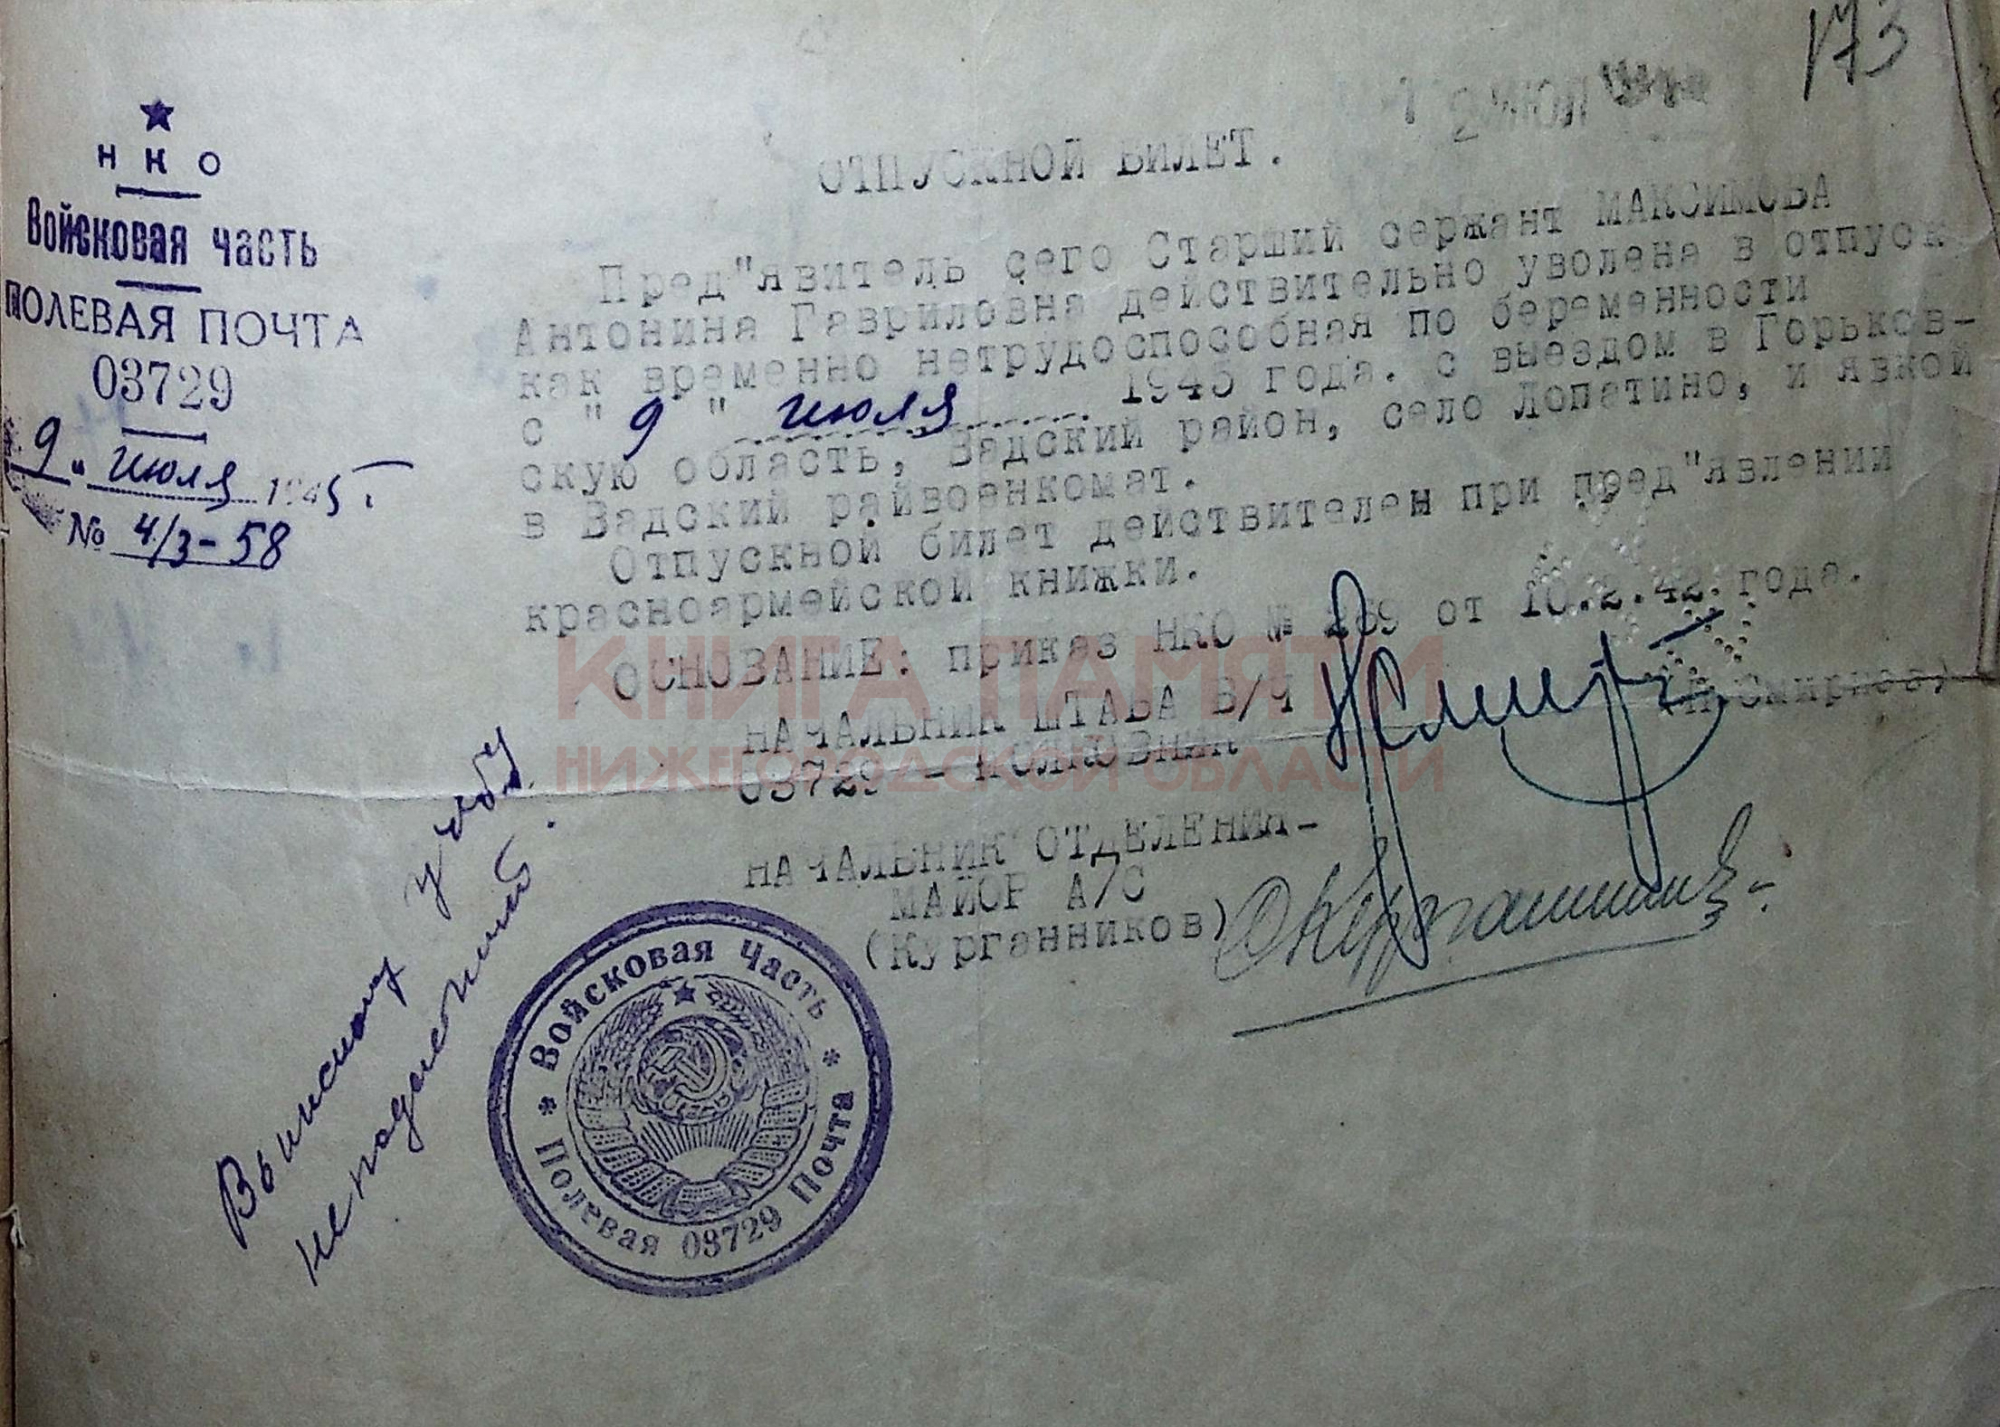 173
2 ИЮЛ
Н К О
Войсковая часть
ПОЛЕВАЯ ПОЧТА
03729
"9" июля 1945 г.
№ 4/3-58
ОТПУСКНОЙ БИЛЕТ.
Пред"явитель сего Старший сержант МАКСИМОВА
Антонина Гавриловна действительно уволена в отпуск
как временно нетрудоспособная по беременности
с "9" июля 1945 года. с выездом в Горьков-
скую область, Вадский район, село Лопатино, и явкой
в Вадский райвоенкомат.
Отпускной билет действителен при пред"явлении
красноармейской книжки.
ОСНОВАНИЕ: приказ НКО № от 10.2.42 года.
НАЧАЛЬНИК ШТАБА В/Ч
03729 - ПОЛКОВНИК
Смирнов)
НАЧАЛЬНИК ОТДЕЛЕНИЯ-
МАЙОР А/С
(Курганников)
Войсковая Часть
Полевая 03729 Почта
СССР
КНИГА ПАМЯТИ
НИЖЕГОРОДСКОЙ ОБЛАСТИ